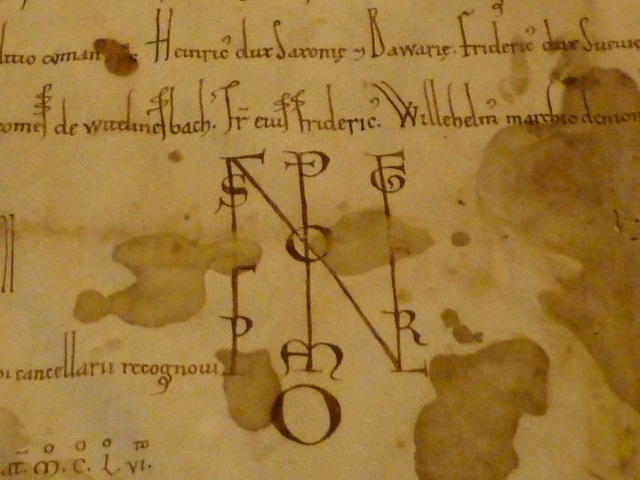 Heinric' dux Saxonię ⁊ Bawarię. Frideric' dux Suevię
de witelinesbach. Fr̄ eius Frideric'. Willehelm' marchio de mon
S P E
C
P R
M
O
cancellarii recognovi
M. C. L. VI.